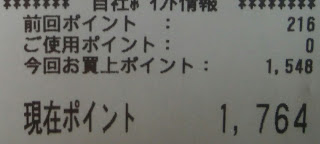 ******* 自社ﾎﾟｲﾝﾄ情報 *******
前回ポイント : 216
ご使用ポイント : 0
今回お買上ポイント : 1,548
現在ポイント 1,764